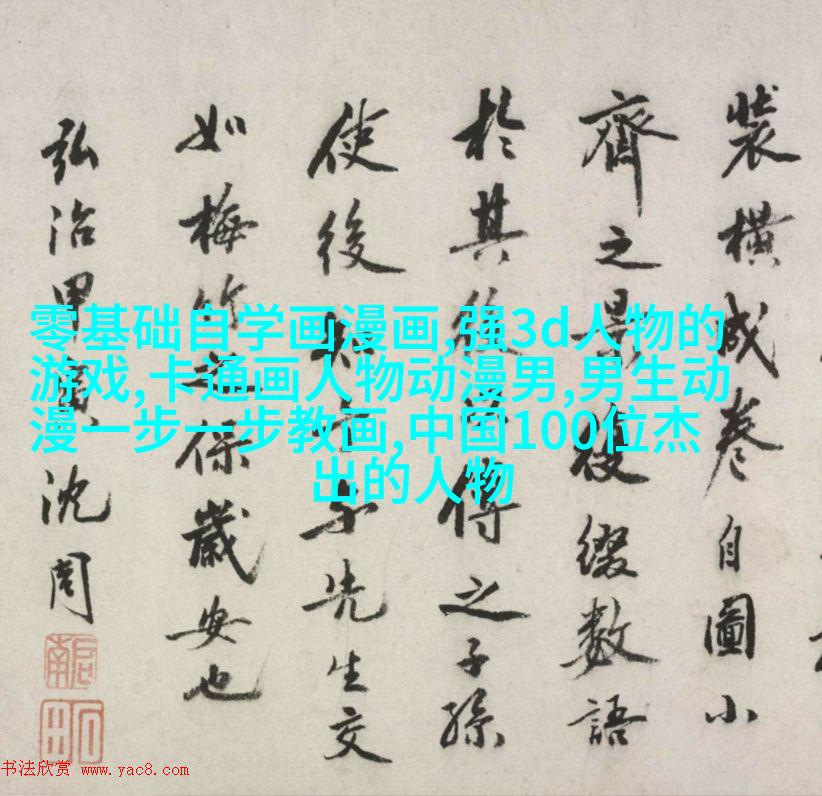 裝橫成卷自圖小
齊之景後綴數語
於其後傳之子孫
使後知先生交
如梅竹之保歲安也
弘治甲寅沈周
啟南
石田
零基础自学画漫画,强3d人物的
游戏,卡通画人物动漫男,男生动
漫一步一步教画,中国100位杰
出的人物
书法欣赏 www.yac8.com